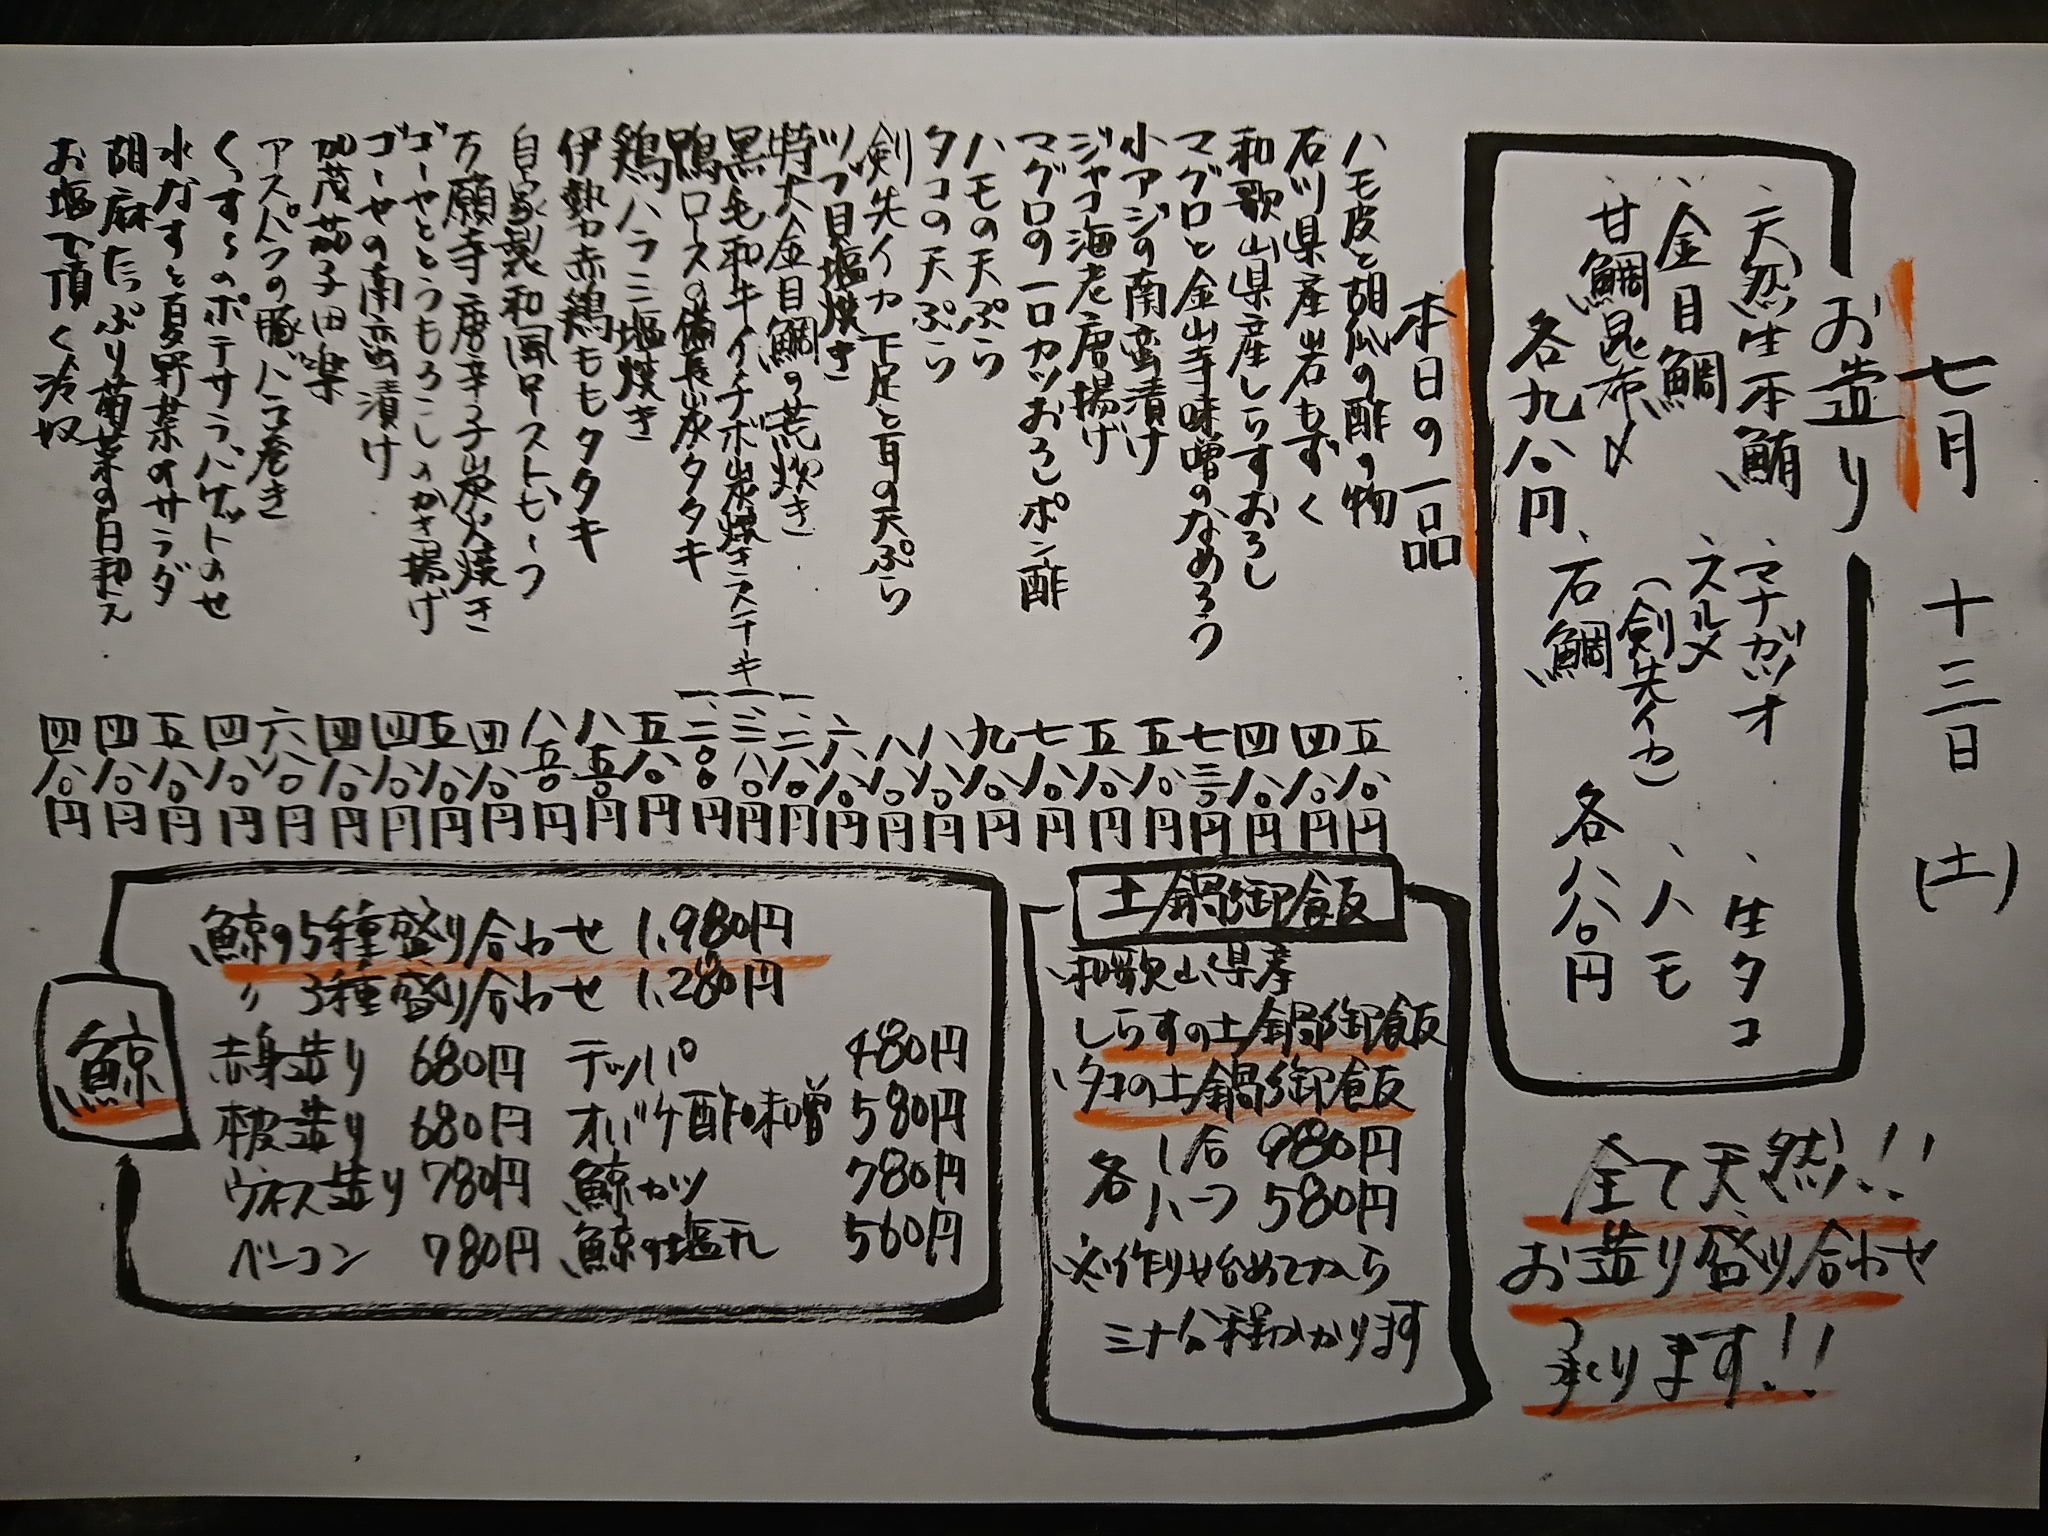 七月 十三日 (土)
お造り
、天然生本鮪 、マナガツオ 、生タコ
、金目鯛 、スルメ 、ハモ
(剣先イカ)
、甘鯛昆布〆 、石鯛
各九八〇円 各八八〇円
全て天然!!
お造り盛り合わせ
承ります!!
本日の一品
ハモ皮と胡瓜の酢の物 五八〇円
石川県産岩もずく 四八〇円
和歌山県産しらすおろし 四八〇円
マグロと金山寺味噌のなめろう 七三〇円
小アジの南蛮漬け 五八〇円
ジャコ海老唐揚げ 五八〇円
マグロの一口カツおろしポン酢 七八〇円
ハモの天ぷら 九八〇円
タコの天ぷら 八八〇円
剣先イカ下足と耳の天ぷら 八八〇円
ツブ貝塩焼き 六八〇円
特大金目鯛の荒炊き 一、二八〇円
黒毛和牛イチボ炭焼きステーキ 一、三八〇円
鴨ロースの備長炭タタキ 一、二〇〇円
鶏ハラミ塩焼き 五八〇円
伊勢赤鶏ももタタキ 八五〇円
自家製和風ローストビーフ 八五〇円
万願寺唐辛子炭火焼き 四八〇円
ゴーヤととうもろこしのかき揚げ 五八〇円
ゴーヤの南蛮漬け 四八〇円
加茂茄子田楽 四八〇円
アスパラの豚バラ巻き 六八〇円
くっすらのポテサラバゲットのせ 四八〇円
水なすと夏野菜のサラダ 五八〇円
胡麻たっぷり菊菜の白和え 四八〇円
お塩で頂く冷奴 四八〇円
土鍋御飯
、和歌山県産
しらすの土鍋御飯
、タコの土鍋御飯
各 1合 980円
ハーフ 580円
※作り始めてから
三十分程かかります
鯨
鯨の5種盛り合わせ 1,980円
〃 3種盛り合わせ 1,280円
赤身造り 680円 テッパ 480円
本皮造り 680円 オバケ酢味噌 580円
ウネス造り 780円 鯨カツ 780円
ベーコン 780円 鯨の塩丸 560円